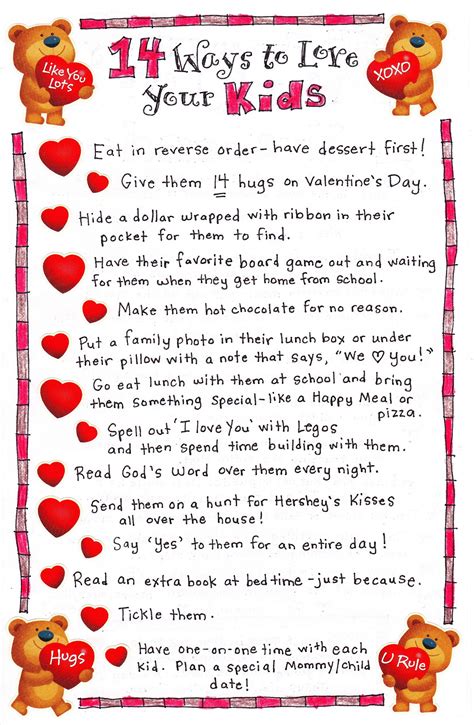 Like You
Lots
14 Ways to Love
your Kids
XOXO
Eat in reverse order - have dessert first!
Give them 14 hugs on Valentine's Day.
Hide a dollar wrapped with ribbon in their
pocket for them to find.
Have their favorite board game out and waiting
for them when they get home from school.
Make them hot chocolate for no reason.
Put a family photo in their lunch box or under
their pillow with a note that says, "We ♡ you!"
Go eat lunch with them at school and bring
them something special-like a Happy Meal or
pizza.
Spell out 'I love You' with Legos
and then spend time building with them.
Read God's Word over them every night.
Send them on a hunt for Hershey's Kisses
all over the house!
Say 'Yes' to them for an entire day!
Read an extra book at bedtime -just because.
Tickle them.
Have one-on-one time with each
kid. Plan a special Mommy/Child
date!
Hugs
U Rule